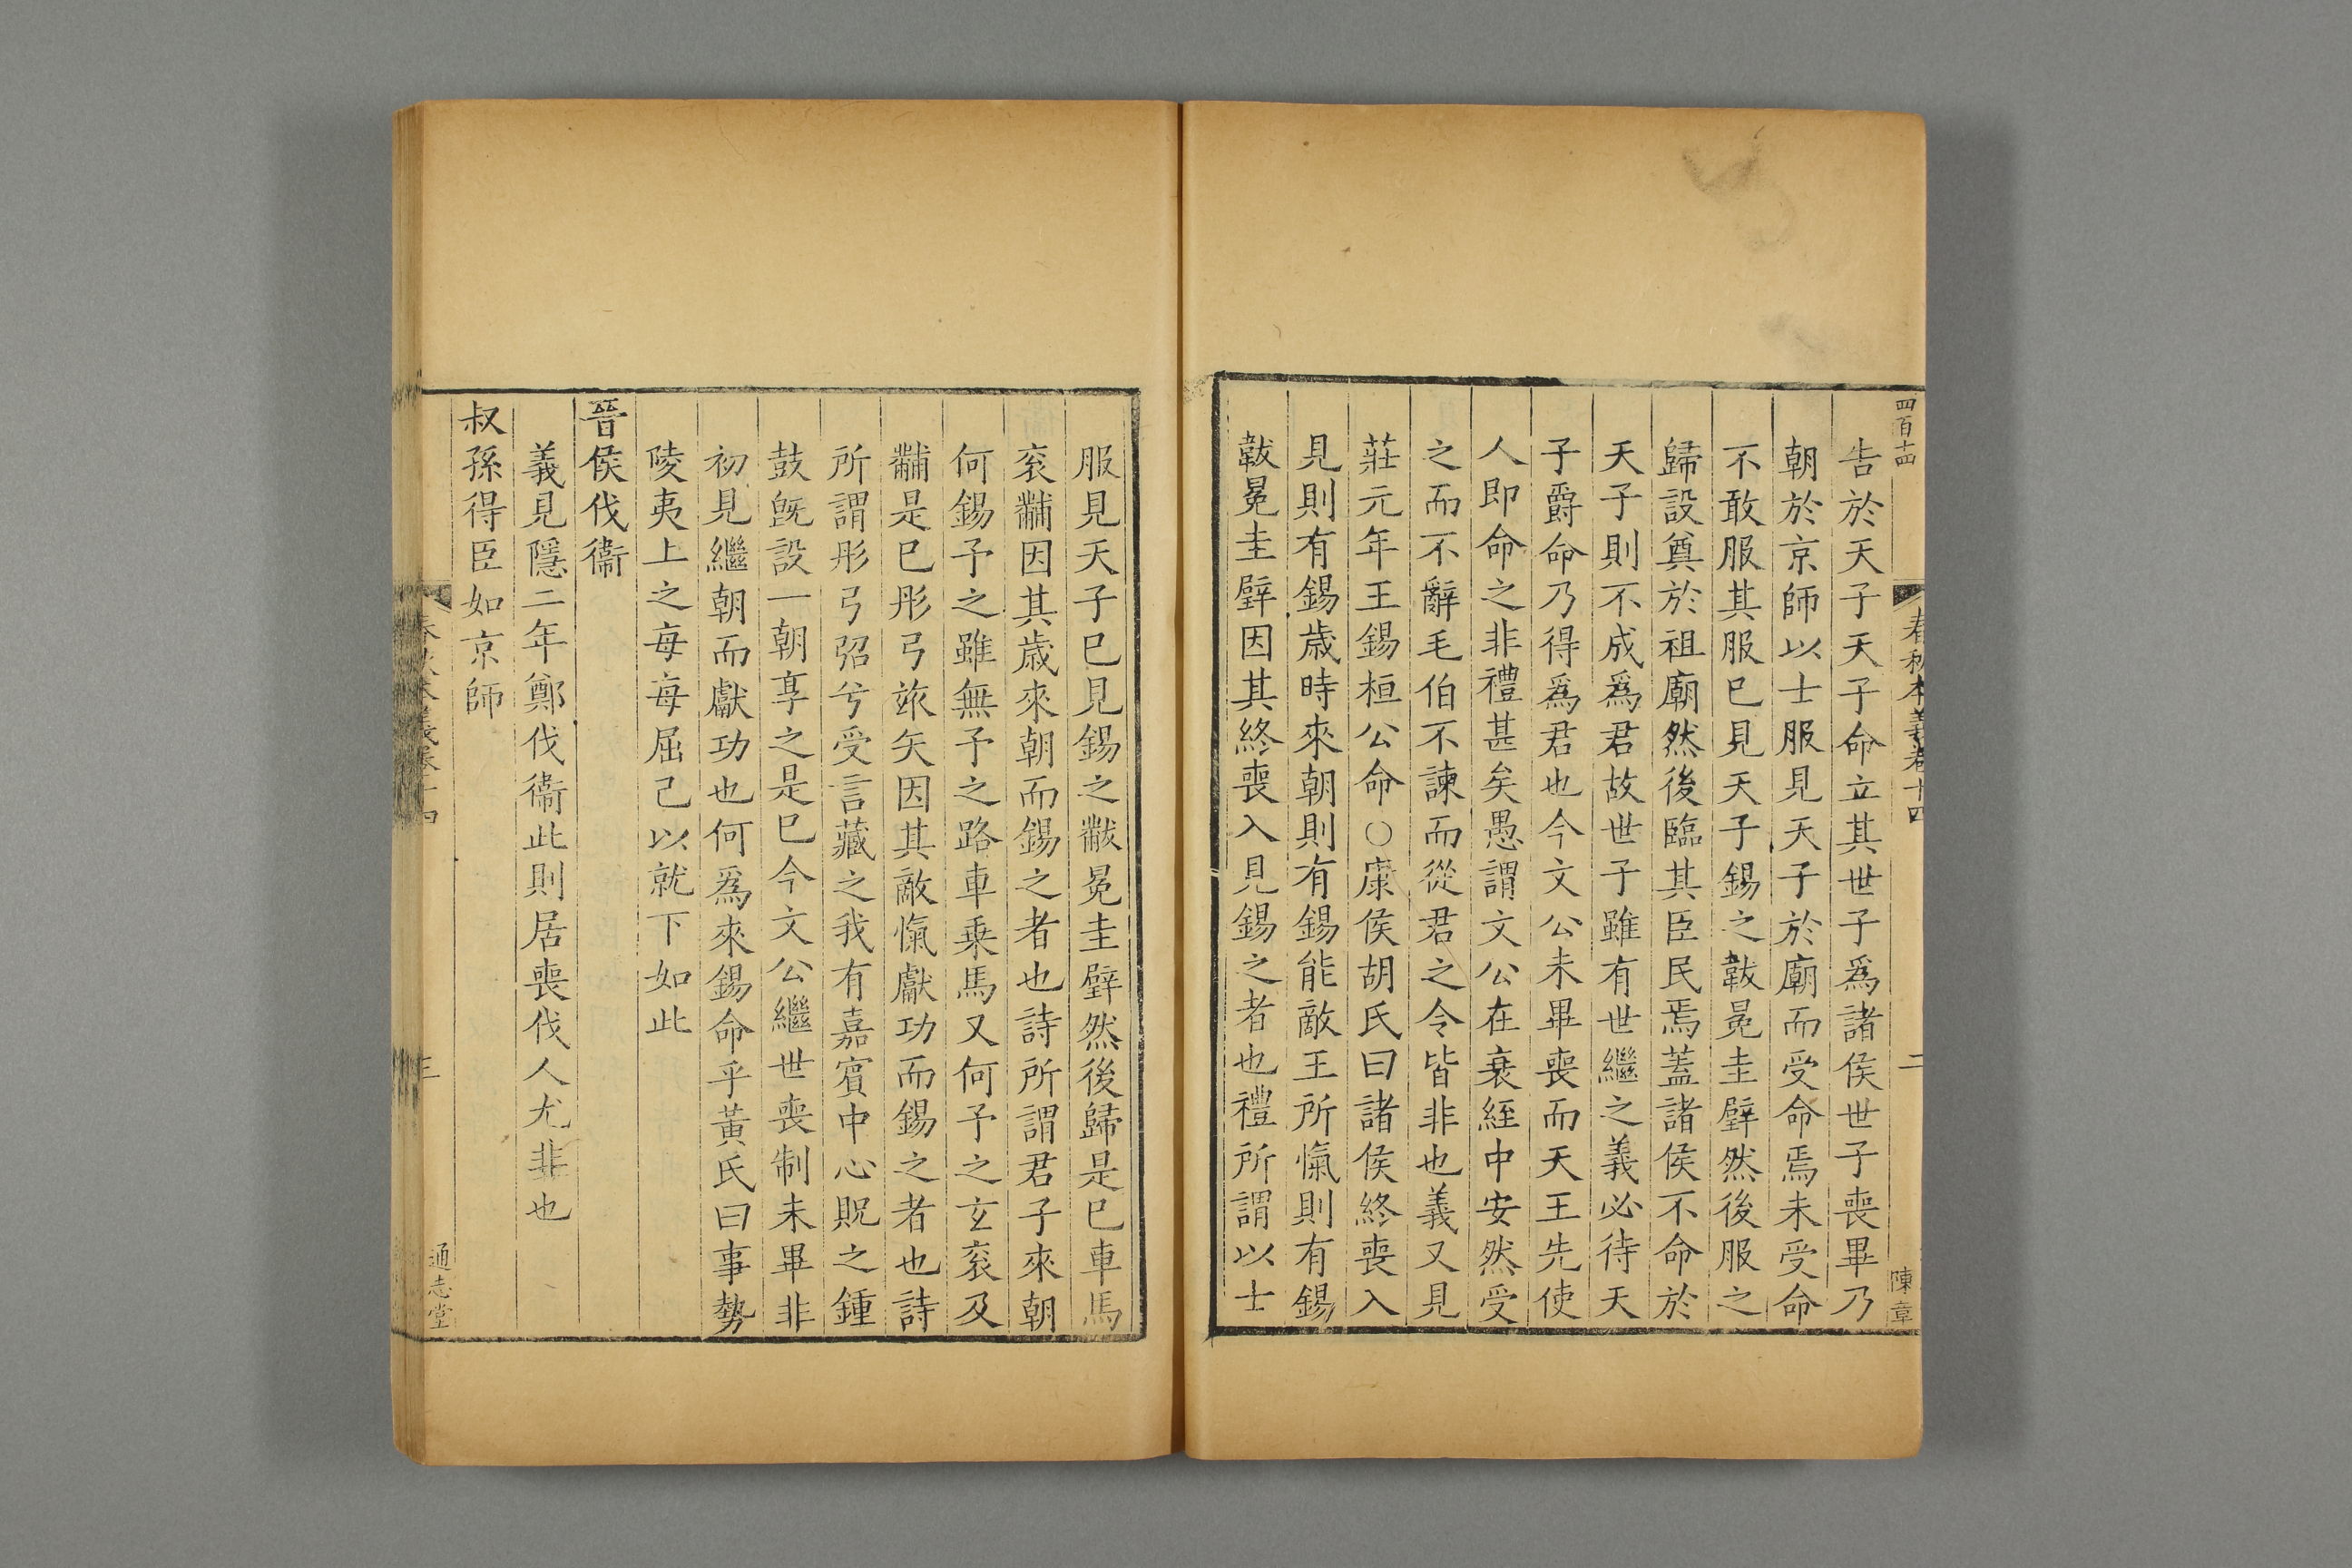 四百十四
春秋本義卷十四
二
陳章
告於天子天子命立其世子爲諸侯世子喪畢乃
朝於京師以士服見天子於廟而受命焉未受命
不敢服其服已見天子錫之韍冕圭璧然後服之
歸設奠於祖廟然後臨其臣民焉蓋諸侯不命於
天子則不成爲君故世子雖有世繼之義必待天
子爵命乃得爲君也今文公未畢喪而天王先使
人即命之非禮甚矣愚謂文公在衰絰中安然受
之而不辭毛伯不諫而從君之令皆非也義又見
莊元年王錫桓公命○康侯胡氏曰諸侯終喪入
見則有錫歲時來朝則有錫能敵王所愾則有錫
韍冕圭璧因其終喪入見錫之者也禮所謂以士
服見天子已見錫之黻冕圭璧然後歸是已車馬
衮黼因其歲來朝而錫之者也詩所謂君子來朝
何錫予之雖無予之路車乗馬又何予之玄衮及
黼是已彤弓玈矢因其敵愾獻功而錫之者也詩
所謂彤弓弨兮受言藏之我有嘉賓中心貺之鍾
鼓旣設一朝享之是已今文公繼世喪制未畢非
初見繼朝而獻功也何爲來錫命乎黃氏曰事勢
陵夷上之每每屈己以就下如此
晉侯伐衞
義見隱二年鄭伐衞此則居喪伐人尤非也
叔孫得臣如京師
春秋本義卷十四
三
通志堂